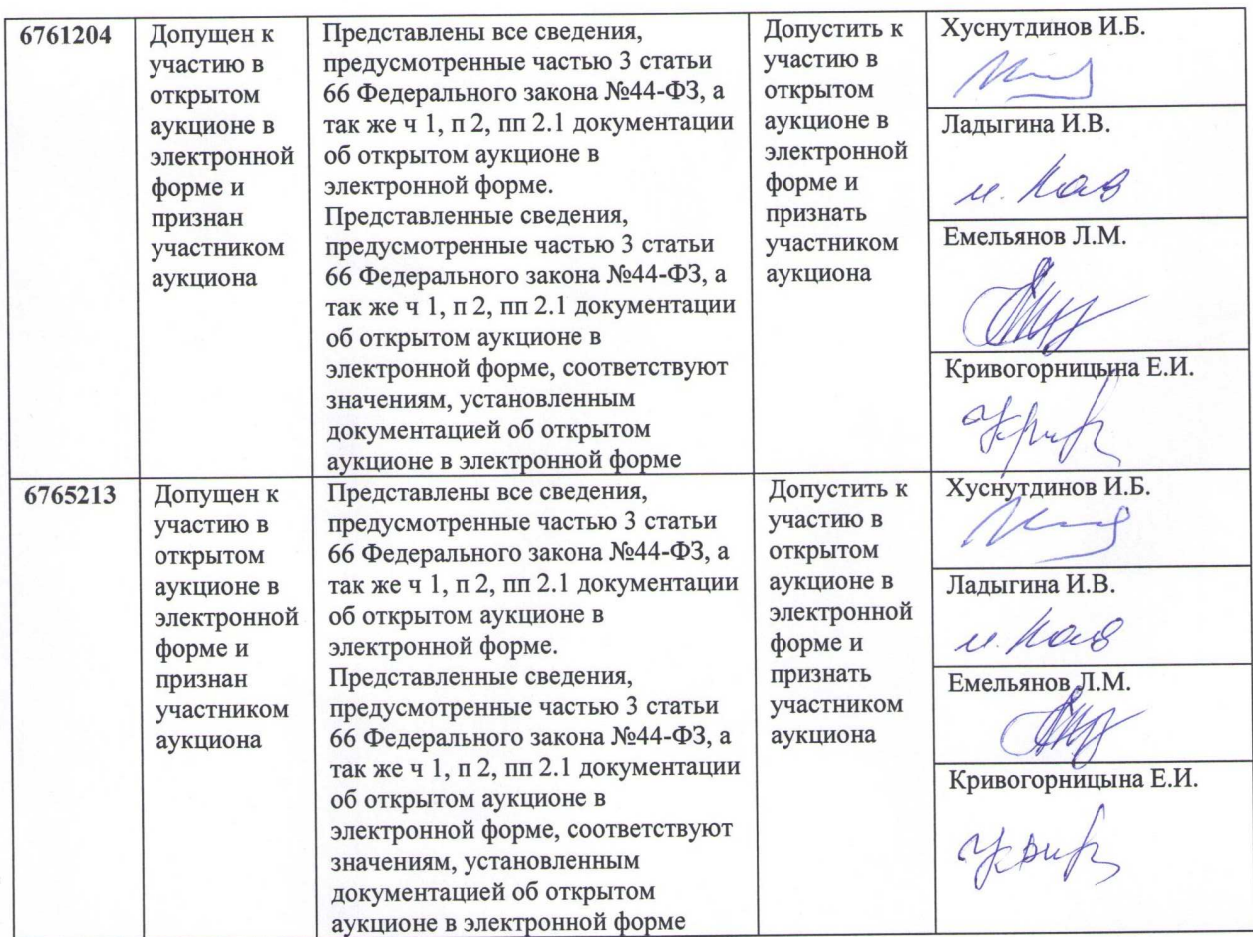 6761204
Допущен к
участию в
открытом
аукционе в
электронной
форме и
признан
участником
аукциона
Представлены все сведения,
предусмотренные частью 3 статьи
66 Федерального закона №44-ФЗ, а
так же ч 1, п 2, пп 2.1 документации
об открытом аукционе в
электронной форме.
Представленные сведения,
предусмотренные частью 3 статьи
66 Федерального закона №44-ФЗ, а
так же ч 1, п 2, пп 2.1 документации
об открытом аукционе в
электронной форме, соответствуют
значениям, установленным
документацией об открытом
аукционе в электронной форме
Допустить к
участию в
открытом
аукционе в
электронной
форме и
признать
участником
аукциона
Хуснутдинов И.Б.
Ладыгина И.В.
Емельянов Л.М.
Кривогорницына Е.И.
6765213
Допущен к
участию в
открытом
аукционе в
электронной
форме и
признан
участником
аукциона
Представлены все сведения,
предусмотренные частью 3 статьи
66 Федерального закона №44-ФЗ, а
так же ч 1, п 2, пп 2.1 документации
об открытом аукционе в
электронной форме.
Представленные сведения,
предусмотренные частью 3 статьи
66 Федерального закона №44-ФЗ, а
так же ч 1, п 2, пп 2.1 документации
об открытом аукционе в
электронной форме, соответствуют
значениям, установленным
документацией об открытом
аукционе в электронной форме
Допустить к
участию в
открытом
аукционе в
электронной
форме и
признать
участником
аукциона
Хуснутдинов И.Б.
Ладыгина И.В.
Емельянов Л.М.
Кривогорницына Е.И.